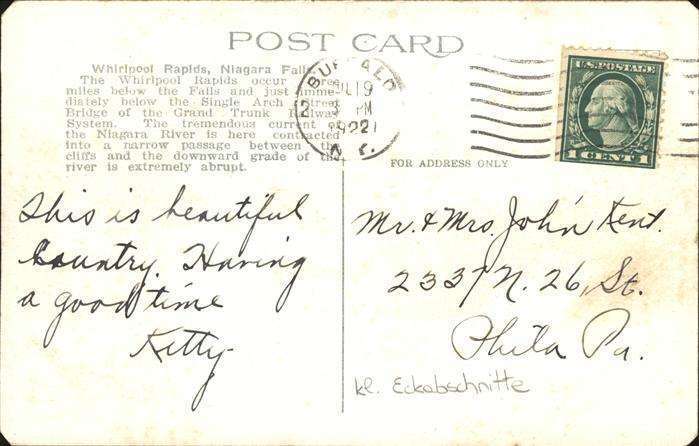 POST CARD
Whirlpool Rapids, Niagara Fall
The Whirlpool Rapids occur three
miles below the Falls and just imme-
diately below the Single Arch Street
Bridge of the Grand Trunk Railway
System. The tremendous current of
the Niagara River is here contracted
into a narrow passage between the
cliffs and the downward grade of the
river is extremely abrupt.
BUFFALO
JUL 19
3 PM
N.Y.
U.S. POSTAGE
1 CENT 1
FOR ADDRESS ONLY
This is beautiful
Country. Having
a good time
Kitty
Mr. & Mrs. John Kent.
2337 N. 26, St.
Phila Pa.
kl. Eckabschnitte